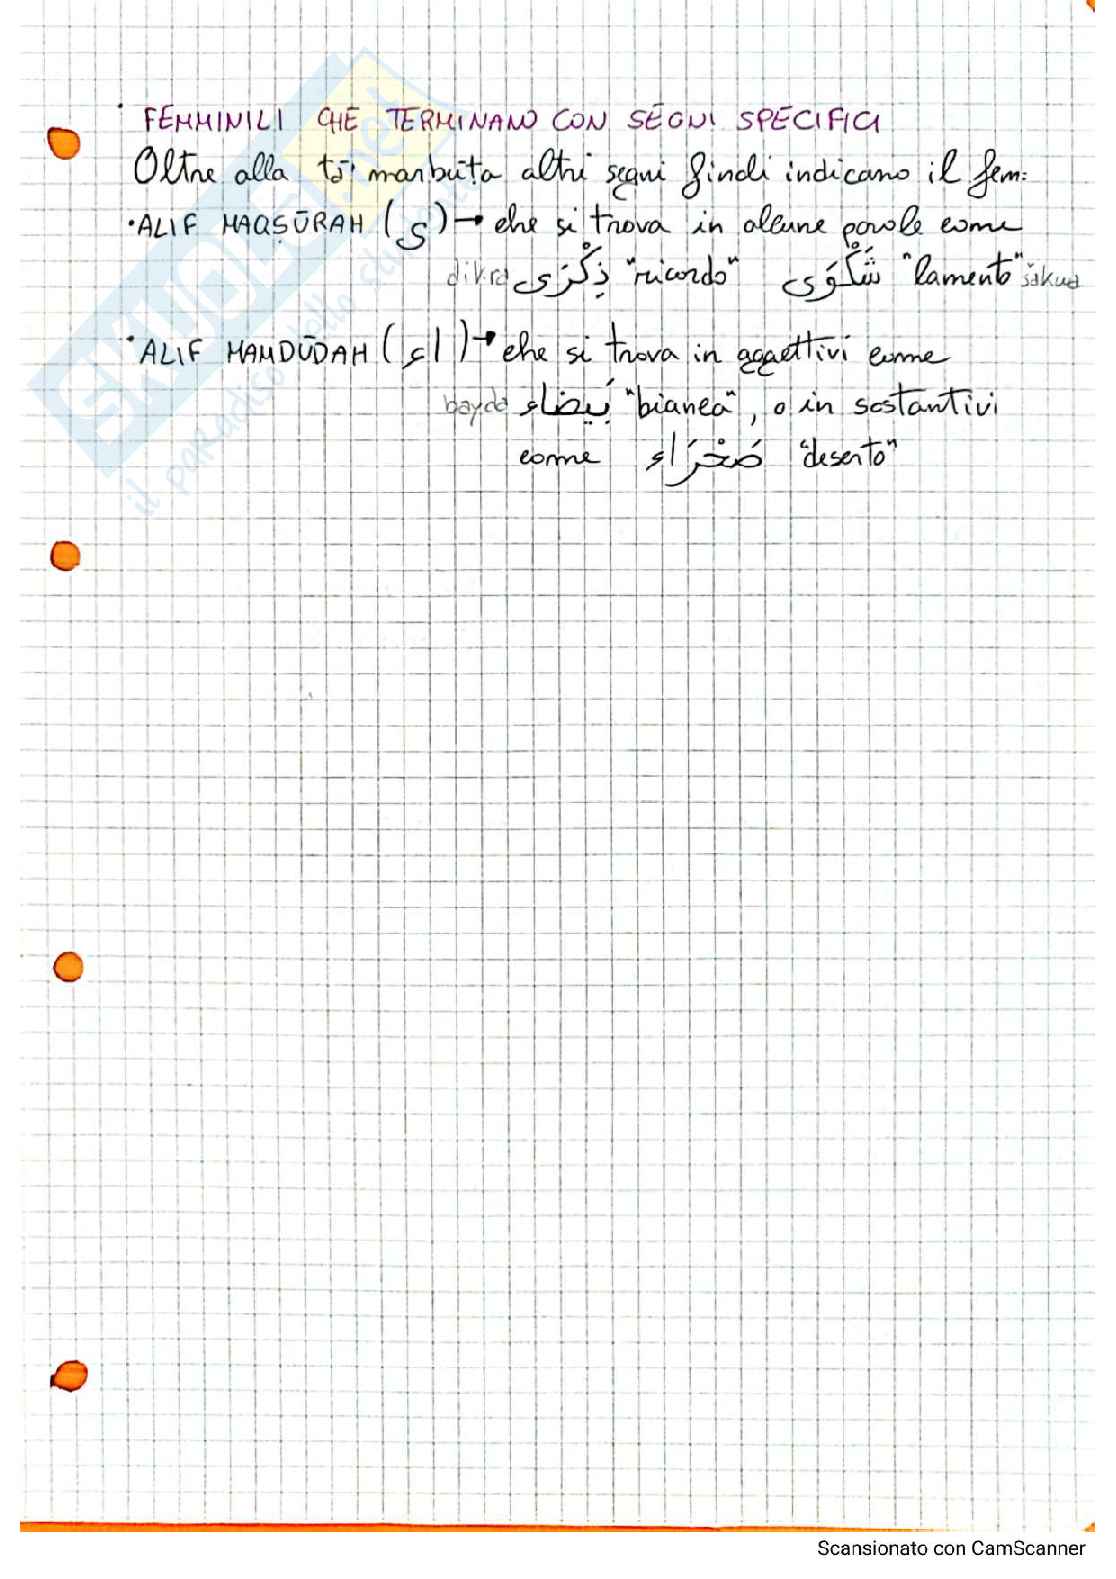 · FEMMINILI CHE TERMINANO CON SEGNI SPECIFICI
Oltre alla tā' marbūṭa altri segni finali indicano il fem:
· ALIF MAQṢŪRAH (ى) → che si trova in alcune parole come
dikra ذِكْرَى "ricordo" شَكْوَى "lamento" šakua
· ALIF MAMDŪDAH (اء) → che si trova in aggettivi come
bayda بَيضاء "bianca", o in sostantivi
come صَحْرَاء "deserto"
SKUOLA.net
il paradiso dello studente
Scansionato con CamScanner